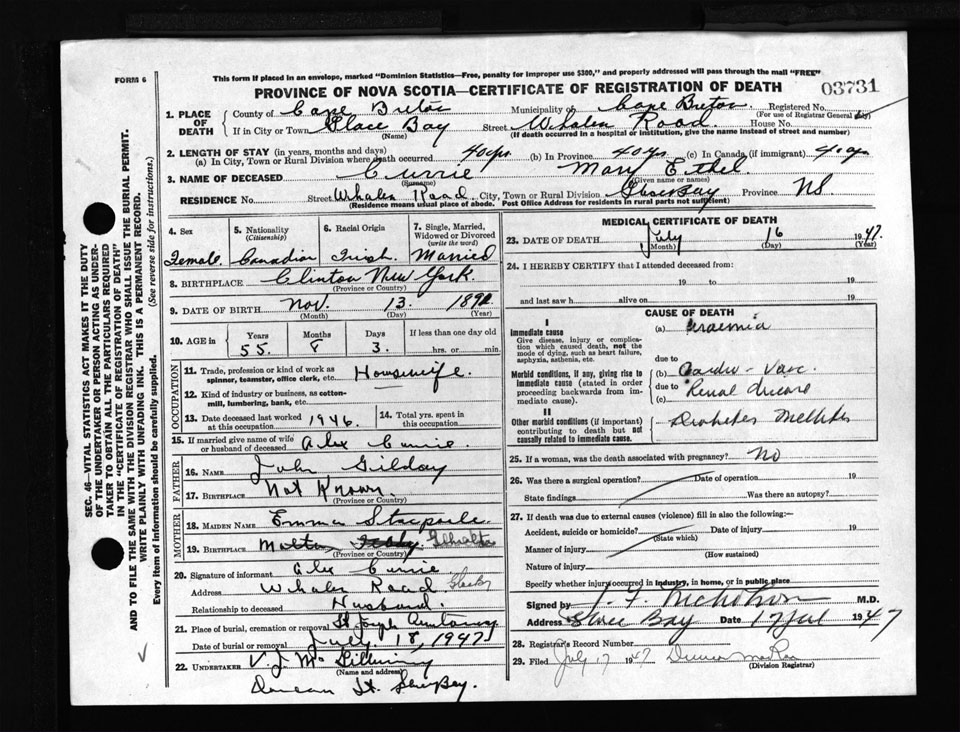 FORM 6
This form if placed in an envelope, marked "Dominion Statistics—Free, penalty for improper use $300," and properly addressed will pass through the mail "FREE"
PROVINCE OF NOVA SCOTIA—CERTIFICATE OF REGISTRATION OF DEATH
03731
1. PLACE OF DEATH
County of Cape Breton Municipality of Cape Breton Registered No.
(For use of Registrar General)
If in City or Town Glace Bay Street Whalen Road House No.
(Name) (If death occurred in a hospital or institution, give the name instead of street and number)
2. LENGTH OF STAY (in years, months and days)
(a) In City, Town or Rural Division where death occurred 40 yrs (b) In Province 40 yrs (c) In Canada (if immigrant) 40 yrs
3. NAME OF DECEASED Currie Mary Ethel
(Surname) (Given name or names)
RESIDENCE No. Street Whalen Road City, Town or Rural Division Glace Bay Province NS
(Residence means usual place of abode. Post Office Address for residents in rural parts not sufficient)
4. Sex
Female
5. Nationality
(Citizenship)
Canadian
6. Racial Origin
Irish
7. Single, Married, Widowed or Divorced
(write the word)
Married
8. BIRTHPLACE Clinton New York
(Province or Country)
9. DATE OF BIRTH Nov. 13. 1892
(Month) (Day) (Year)
10. AGE in
Years Months Days If less than one day old
55. 8 3. hrs. or min.
OCCUPATION
11. Trade, profession or kind of work as spinner, teamster, office clerk, etc. Housewife
12. Kind of industry or business, as cotton-mill, lumbering, bank, etc.
13. Date deceased last worked at this occupation 1946.
14. Total yrs. spent in this occupation
15. If married give name of wife or husband of deceased Alex Currie.
FATHER
16. NAME John Gilday
17. BIRTHPLACE Not Known
(Province or Country)
MOTHER
18. MAIDEN NAME Emma Stacpoole
19. BIRTHPLACE Malta
(Province or Country)
20. Signature of informant Alex Currie
Address Whalen Road
Relationship to deceased Husband.
21. Place of burial, cremation or removal St Joseph
Date of burial or removal July 18, 1947
22. UNDERTAKER V. J. McGillivray
(Name and address)
St. Glace Bay.
MEDICAL CERTIFICATE OF DEATH
23. DATE OF DEATH July 16 1947.
(Month) (Day) (Year)
24. I HEREBY CERTIFY that I attended deceased from:
19 to 19
and last saw h alive on 19
CAUSE OF DEATH
I
Immediate cause
Give disease, injury or complication which caused death, not the mode of dying, such as heart failure, asphyxia, asthenia, etc.
(a) Uraemia
due to
Morbid conditions, if any, giving rise to immediate cause (stated in order proceeding backwards from immediate cause).
(b) Cardio-Vasc.
due to Renal disease
(c)
II
Other morbid conditions (if important) contributing to death but not causally related to immediate cause.
Diabetes Mellitus
25. If a woman, was the death associated with pregnancy? No
26. Was there a surgical operation? Date of operation 19
State findings Was there an autopsy?
27. If death was due to external causes (violence) fill in also the following:
Accident, suicide or homicide? Date of injury 19
(State which)
Manner of injury
(How sustained)
Nature of injury
Specify whether injury occurred in industry, in home, or in public place
Signed by Nicholson M.D.
Address Glace Bay Date 17 Jul 1947
28. Registrar's Record Number
29. Filed July 17 1947
(Division Registrar)
SEC. 46—VITAL STATISTICS ACT MAKES IT THE DUTY
OF THE UNDERTAKER OR PERSON ACTING AS UNDER-
TAKER TO OBTAIN ALL THE PARTICULARS REQUIRED
IN THE "CERTIFICATE OF REGISTRATION OF DEATH"
AND TO FILE THE SAME WITH THE DIVISION REGISTRAR WHO SHALL ISSUE THE BURIAL PERMIT.
WRITE PLAINLY WITH UNFADING INK. THIS IS A PERMANENT RECORD.
Every item of information should be carefully supplied. (See reverse side for instructions.)